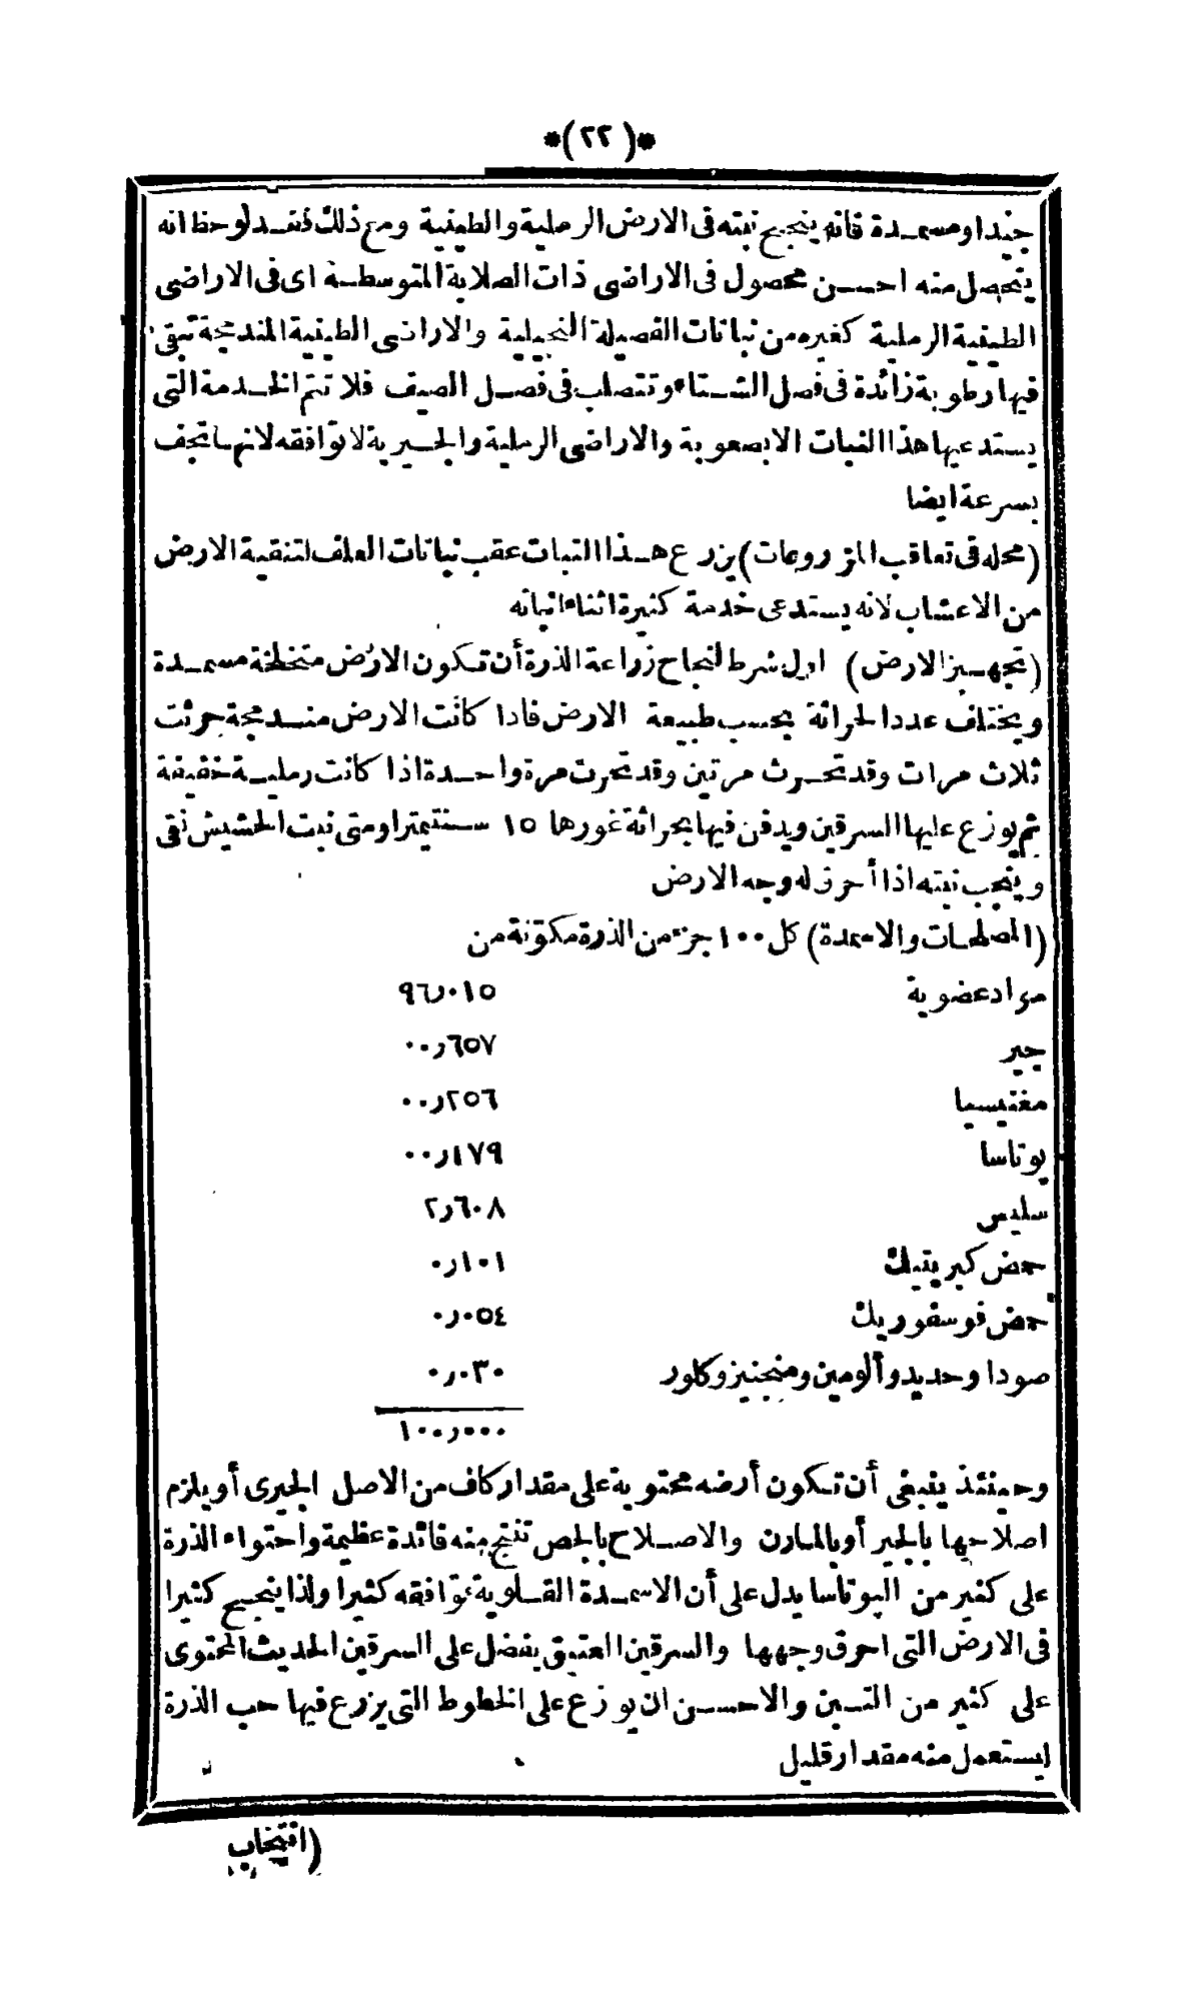 *(٢٢)*
جيدا ومسمدة فانه ينجح نبته فى الارض الرملية والطينية ومع ذلك فقد لوحظ انه
يتحصل منه احسن محصول فى الاراضى ذات الصلابة المتوسطة اى فى الاراضى
الطينية الرملية كغيره من نباتات الفصيلة النجيلية والاراضى الطينية المندمجة تبقى
فيها رطوبة زائدة فى فصل الشتاء وتتصلب فى فصل الصيف فلا تتم الخدمة التى
يستدعيها هذا النبات الا بصعوبة والاراضى الرملية والجيرية لا توافقه لانها تجف
بسرعة ايضا
(محله فى تعاقب المزروعات) يزرع هذا النبات عقب نباتات العلف لتنقية الارض
من الاعشاب لانه يستدعى خدمة كثيرة اثناء انباته
(تجهيز الارض) اول شرط لنجاح زراعة الذرة أن تكون الارض متخلخلة مسمدة
ويختلف عدد الحراثة بحسب طبيعة الارض فاذا كانت الارض مندمجة حرثت
ثلاث مرات وقد تحرث مرتين وقد تحرث مرة واحدة اذا كانت رملية خفيفة
ثم يوزع عليها السرقين ويدفن فيها بحراثة غورها ١٥ سنتيمترا ومتى نبت الحشيش نقى
وينجب نبته اذا أحرق له وجه الارض
(المصلحات والاسمدة) كل ١٠٠ جزء من الذرة مكوّنة من
مواد عضوية ٩٦٫٠١٥
جير ٠٠٫٦٥٧
مغنيسيا ٠٠٫٢٥٦
پوتاسا ٠٠٫١٧٩
سليس ٢٫٦٠٨
حمض كبريتيك ٠٫١٠١
حمض فوسفوريك ٠٫٠٥٤
صودا وحديد وألومين ومنجنيز وكلور ٠٫٠٣٠
١٠٠٫٠٠٠
وحينئذ ينبغى أن تكون أرضه محتوية على مقدار كاف من الاصل الجيرى أو يلزم
اصلاحها بالجير أو بالمارن والاصلاح بالجص تنتج منه فائدة عظيمة واحتواء الذرة
على كثير من الپوتاسا يدل على أن الاسمدة القلوية توافقه كثيرا ولذا ينجح كثيرا
فى الارض التى احرق وجهها والسرقين العتيق يفضل على السرقين الحديث المحتوى
على كثير من التبن والاحسن ان يوزع على الخطوط التى يزرع فيها حب الذرة
ليستعمل منه مقدار قليل
(انتخاب